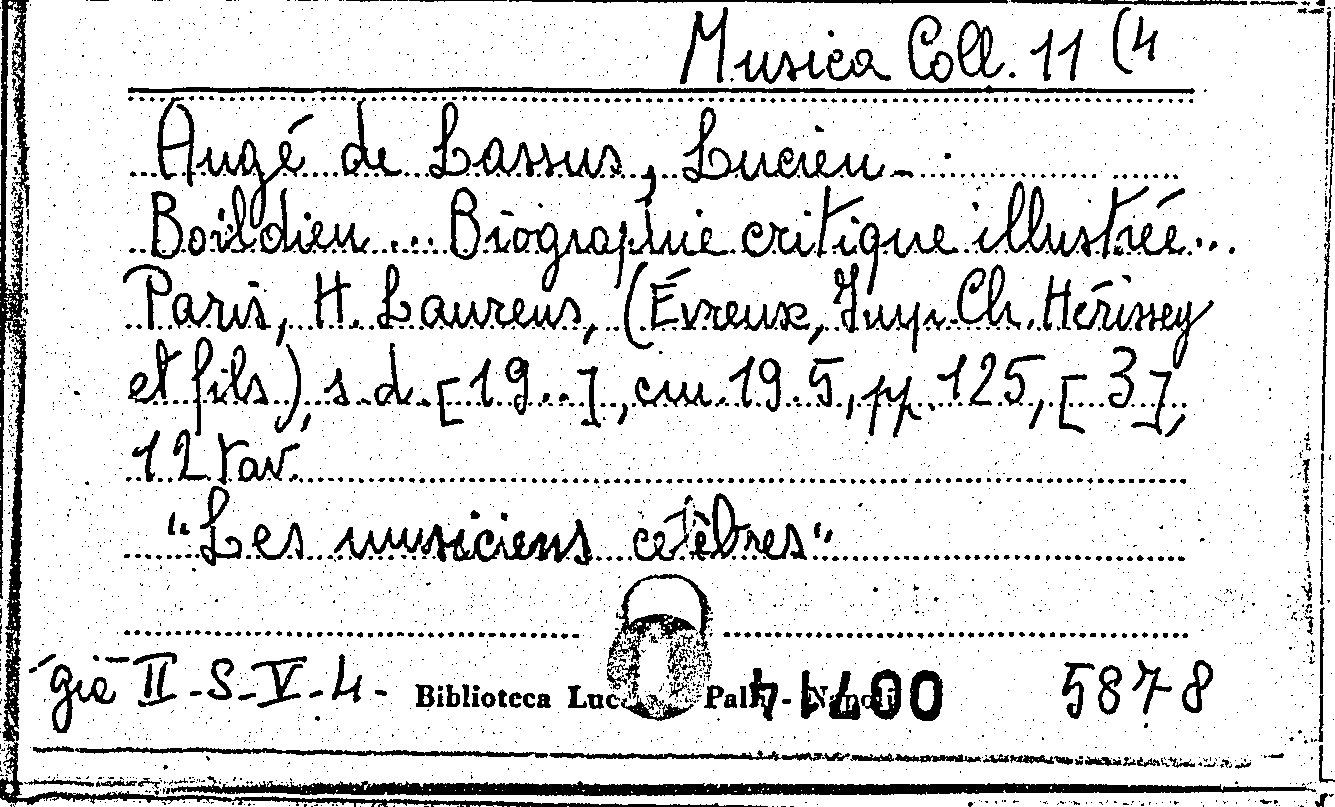 Musica Coll. 11 (4
Augé de Lassus, Lucien -
Boildieu ... Biographie critique illustrée...
Paris, H. Laurens, (Évreux, Imp. Ch. Hérissey
et fils), s.d. [19..], cm. 19.5, pp. 125, [3],
12 tav.
"Les musiciens celèbres"
già II - S - V - 4 - Biblioteca Palli - Napoli 5878